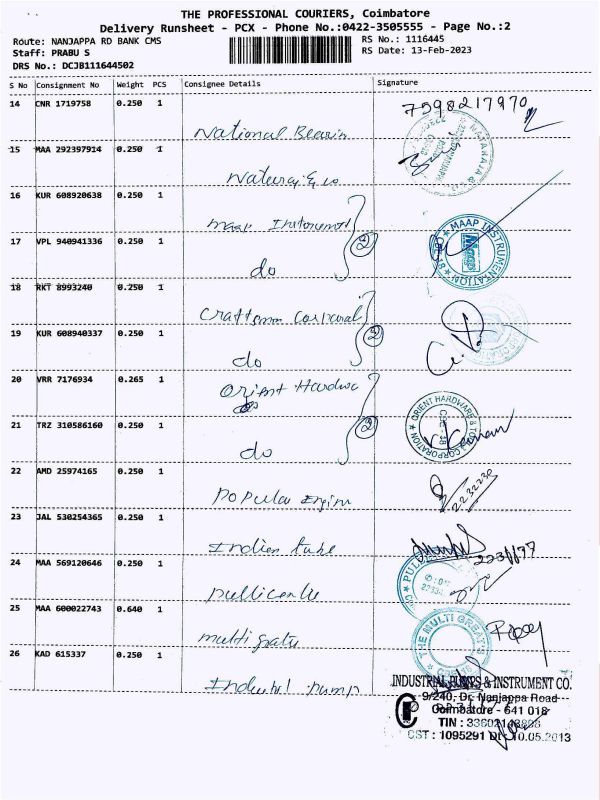 THE PROFESSIONAL COURIERS, Coimbatore
Delivery Runsheet - PCX - Phone No.:0422-3505555 - Page No.:2
Route: NANJAPPA RD BANK CMS
Staff: PRABU S
DRS No.: DCJB111644502
RS No.: 1116445
RS Date: 13-Feb-2023
S No Consignment No Weight PCS Consignee Details Signature
14 CNR 1719758 0.250 1
National Bearin
7598217970
15 MAA 292397914 0.250 1
16 KUR 608920638 0.250 1
Maap Instrument
17 VPL 940941336 0.250 1
do
2
MAAP INSTRUMENTATION
CBE-18
18 RKT 8993240 0.250 1
Craftsman
19 KUR 608940337 0.250 1
do
2
20 VRR 7176934 0.265 1
Orient Hardwa
21 TRZ 310586160 0.250 1
do
2
ORIENT HARDWARE & TOOL CORPORATION
CBE-18
22 AMD 25974165 0.250 1
Popular Engin
2232230
23 JAL 530254365 0.250 1
Indian tube
24 MAA 569120646 0.250 1
25 MAA 600022743 0.640 1
THE MULTI GREAT'S
26 KAD 615337 0.250 1
pump
INDUSTRIAL PUMPS & INSTRUMENT CO.
9/240, Dr. Nanjappa Road
Coimbatore - 641 018
TIN :
CST : 1095291 Dt 10.05.2013